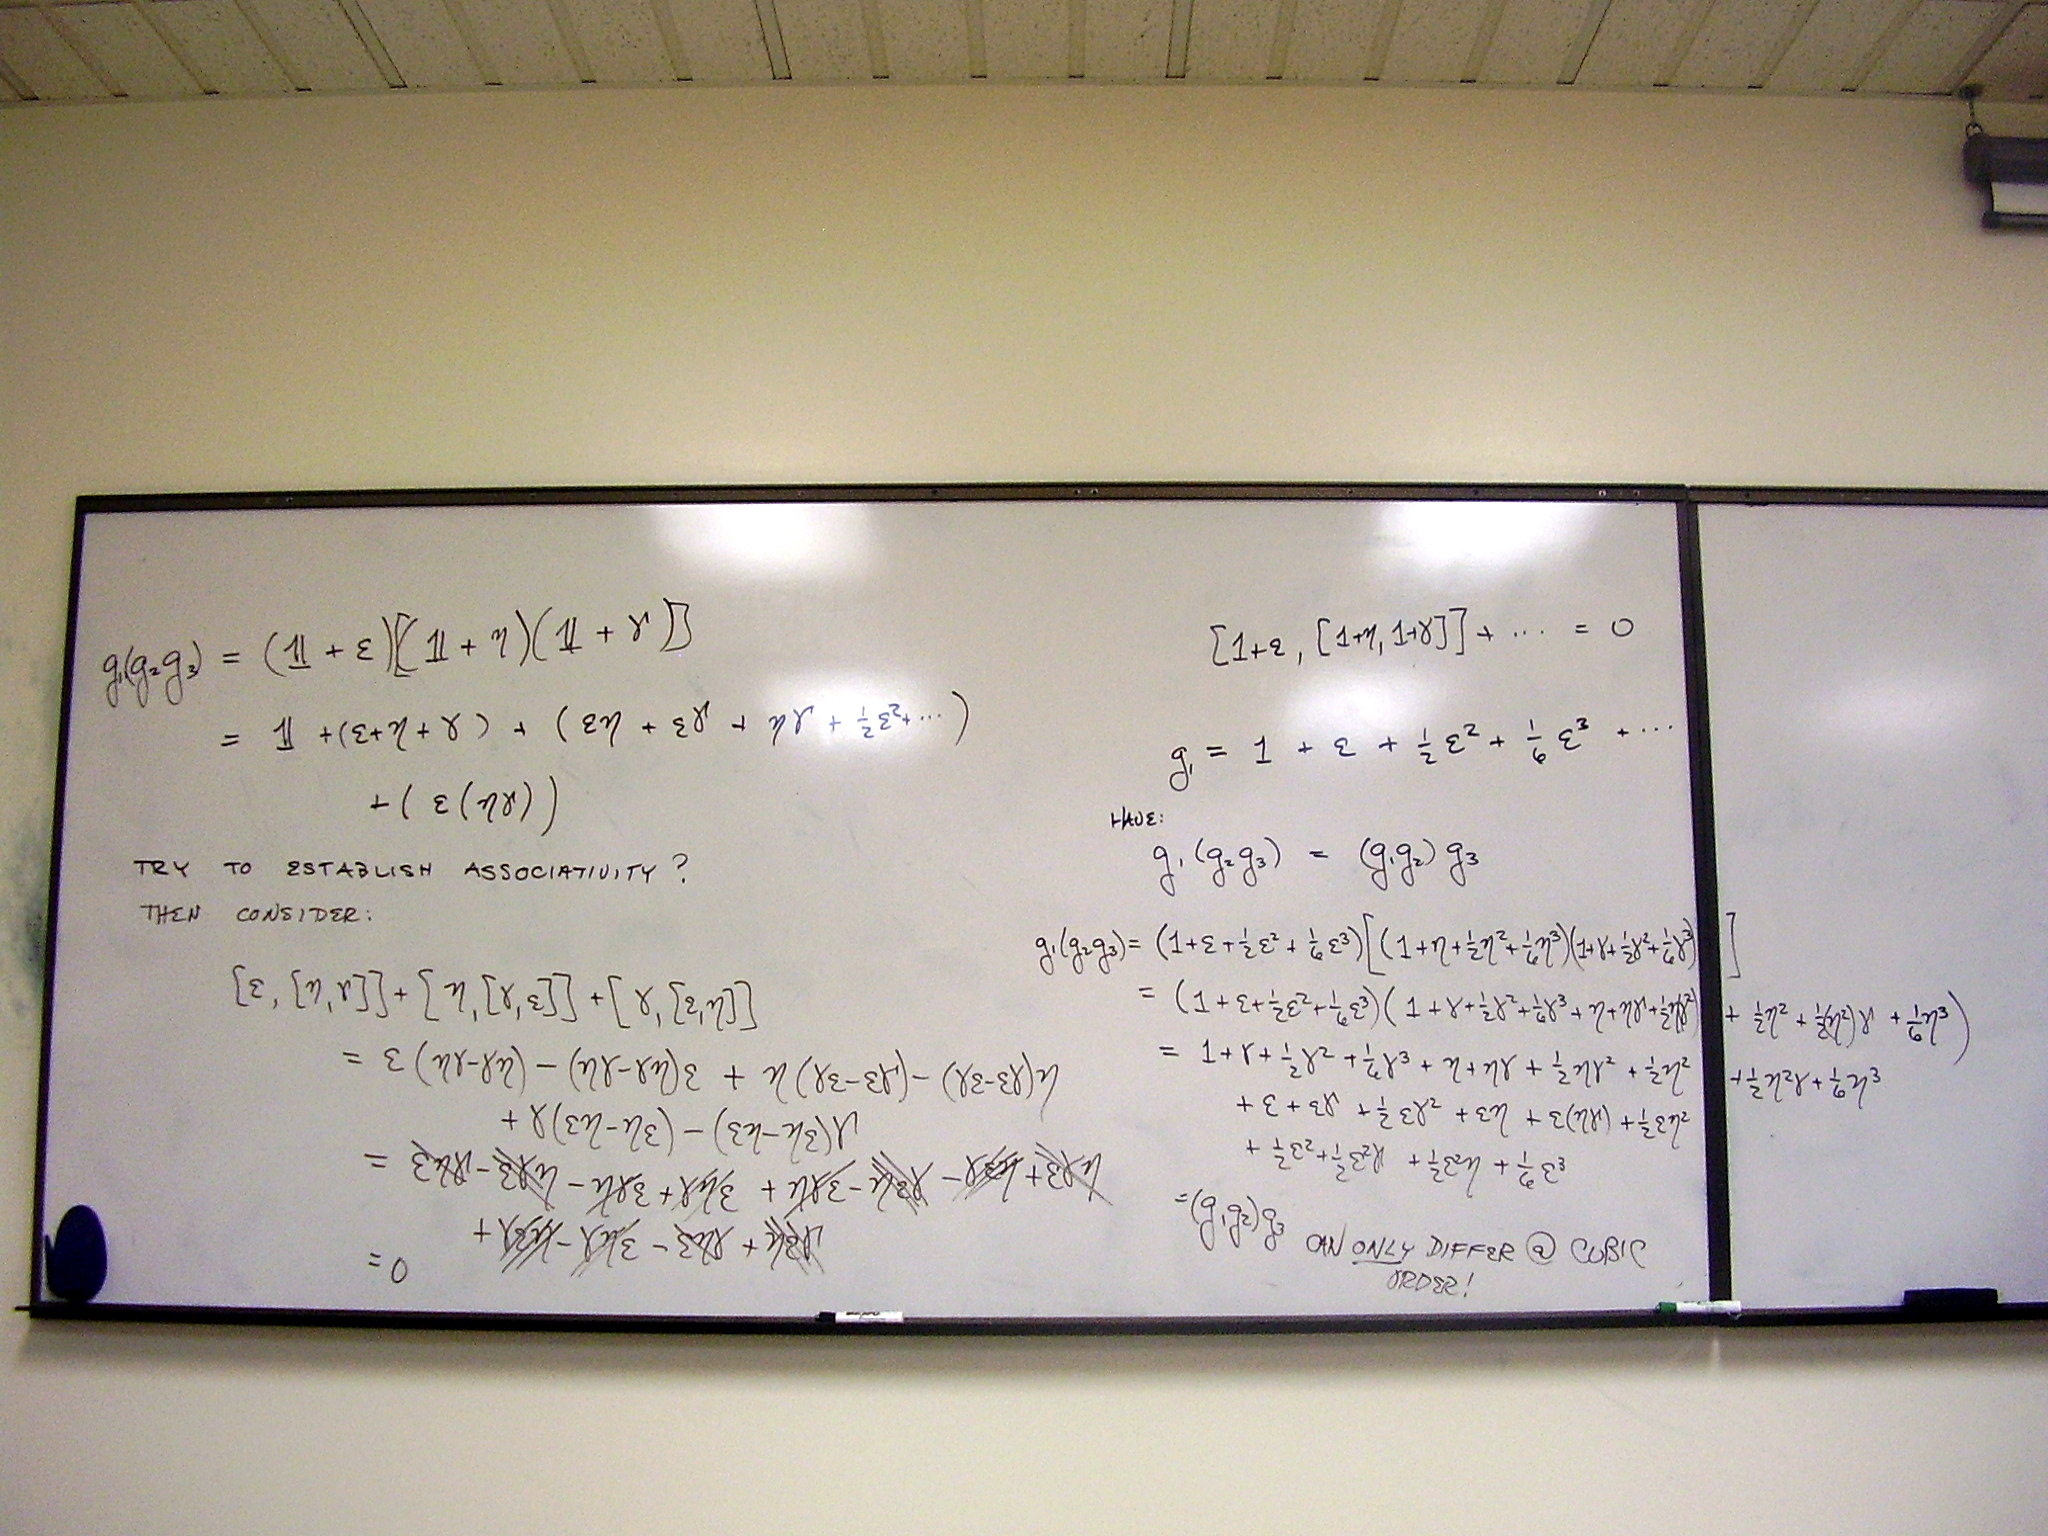 g₁(g₂g₃) = (𝟙 + ε)[(𝟙 + η)(𝟙 + γ)]
= 𝟙 + (ε+η+γ) + (εη + εγ + ηγ + ½ε²+ ⋯)
+ (ε(ηγ))
TRY TO ESTABLISH ASSOCIATIVITY?
THEN CONSIDER:
[ε, [η,γ]] + [η, [γ,ε]] + [γ, [ε,η]]
= ε(ηγ-γη) - (ηγ-γη)ε + η(γε-εγ) - (γε-εγ)η
+ γ(εη-ηε) - (εη-ηε)γ
= 0
[1+ε, [1+η, 1+γ]] + ⋯ = 0
g₁ = 1 + ε + ½ε² + ⅙ε³ + ⋯
HAVE:
g₁(g₂g₃) = (g₁g₂)g₃
g₁(g₂g₃) = (1+ε+½ε²+⅙ε³)[(1+η+½η²+⅙η³)(1+γ+½γ²+⅙γ³)]
= (1+ε+½ε²+⅙ε³)(1+γ+½γ²+⅙γ³+η+ηγ+½ηγ² + ½η² + ½(η²)γ + ⅙η³)
= 1+γ+½γ²+⅙γ³+η+ηγ+½ηγ²+½η² +½η²γ+⅙η³
+ ε + εγ + ½εγ² + εη + ε(ηγ) + ½εη²
+ ½ε²+½ε²γ +½ε²η + ⅙ε³
=(g₁g₂)g₃ CAN ONLY DIFFER @ CUBIC
ORDER!